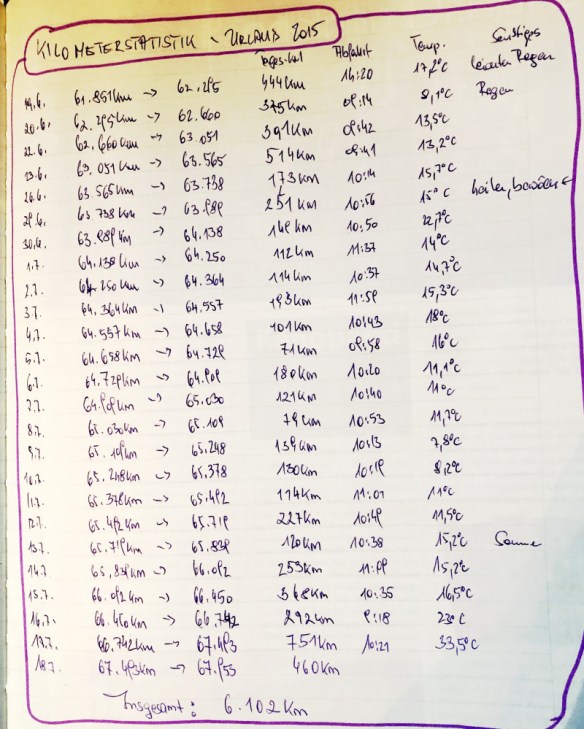 KILOMETERSTATISTIK - URLAUB 2015
Tages-km Abfahrt Temp. Sonstiges
19.6. 61.851km → 62.295 444km 14:20 17,2°C leichter Regen
20.6. 62.295km → 62.660 375km 09:14 8,1°C Regen
22.6. 62.660km → 63.051 391km 09:42 13,5°C
23.6. 63.051km → 63.565 514km 09:41 13,2°C
26.6. 63.565km → 63.738 173km 10:14 15,7°C
29.6. 63.738km → 63.989 251km 10:56 15°C heiter, bewölkt
30.6. 63.989km → 64.138 149km 10:50 22,7°C
1.7. 64.138km → 64.250 112km 11:37 14°C
2.7. 64.250km → 64.364 114km 10:37 14,7°C
3.7. 64.364km → 64.557 193km 11:59 15,3°C
4.7. 64.557km → 64.658 101km 10:43 18°C
5.7. 64.658km → 64.729 71km 09:58 16°C
6.7. 64.729km → 64.909 180km 10:20 11,1°C
7.7. 64.909km → 65.030 121km 10:40 11°C
8.7. 65.030km → 65.109 79km 10:53 11,7°C
9.7. 65.109km → 65.248 139km 10:13 7,8°C
10.7. 65.248km → 65.378 130km 10:19 8,2°C
11.7. 65.378km → 65.492 114km 11:01 11°C
12.7. 65.492km → 65.719 227km 10:49 11,5°C
13.7. 65.719km → 65.839 120km 10:38 15,2°C Sonne
14.7. 65.839km → 66.092 253km 11:59 15,2°C
15.7. 66.092km → 66.450 368km 10:35 16,5°C
16.7. 66.450km → 66.742 292km 9:18 23°C
17.7. 66.742km → 67.493 751km 10:21 33,5°C
18.7. 67.493km → 67.953 460km
Insgesamt: 6.102 km